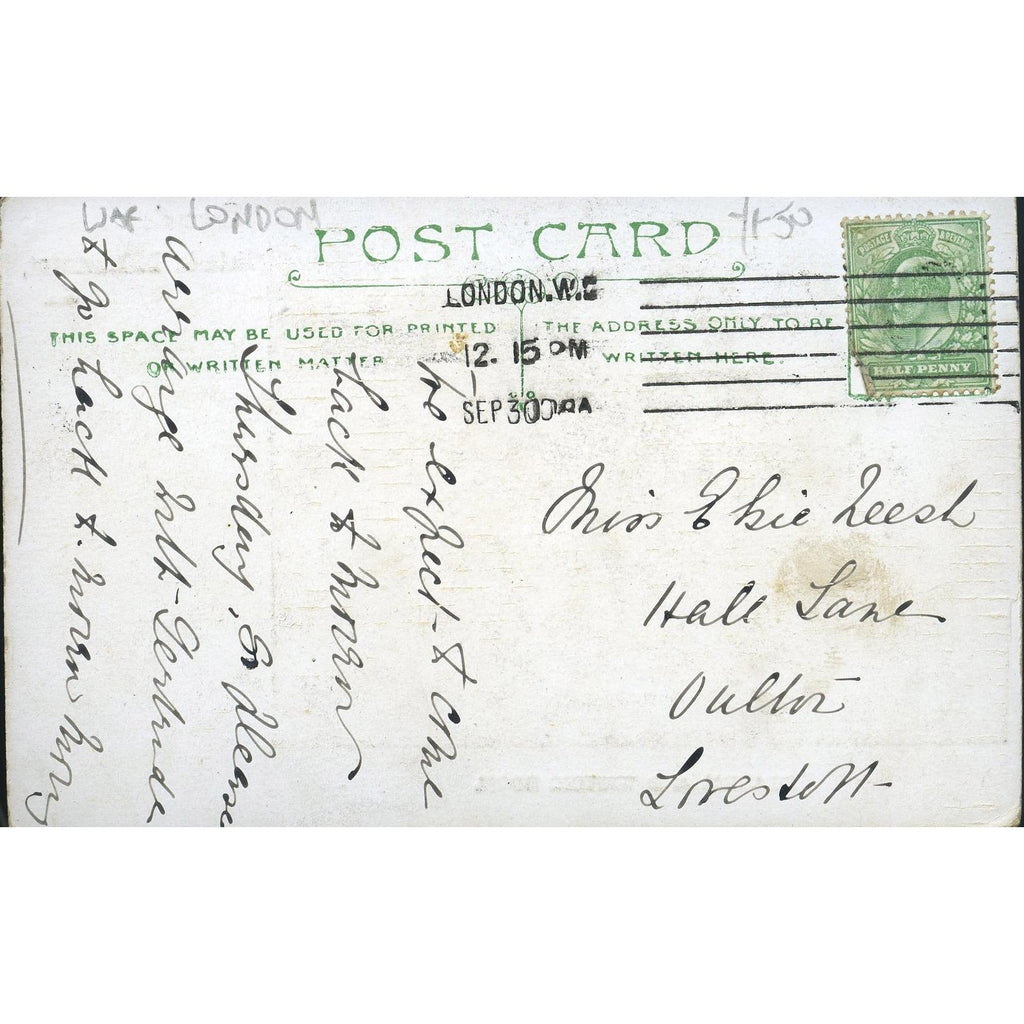 LONDON
POST CARD
LONDON.W.C
THIS SPACE MAY BE USED FOR PRINTED
OR WRITTEN MATTER
THE ADDRESS ONLY TO BE
WRITTEN HERE.
12. 15 PM
SEP 30
POSTAGE & REVENUE
HALF PENNY
We expect to come
back to morrow
Thursday, so please
arrange with Gertrude
to go back to morrow
Miss Elsie Leesh
Hall Lane
Oulton
Lowestoft